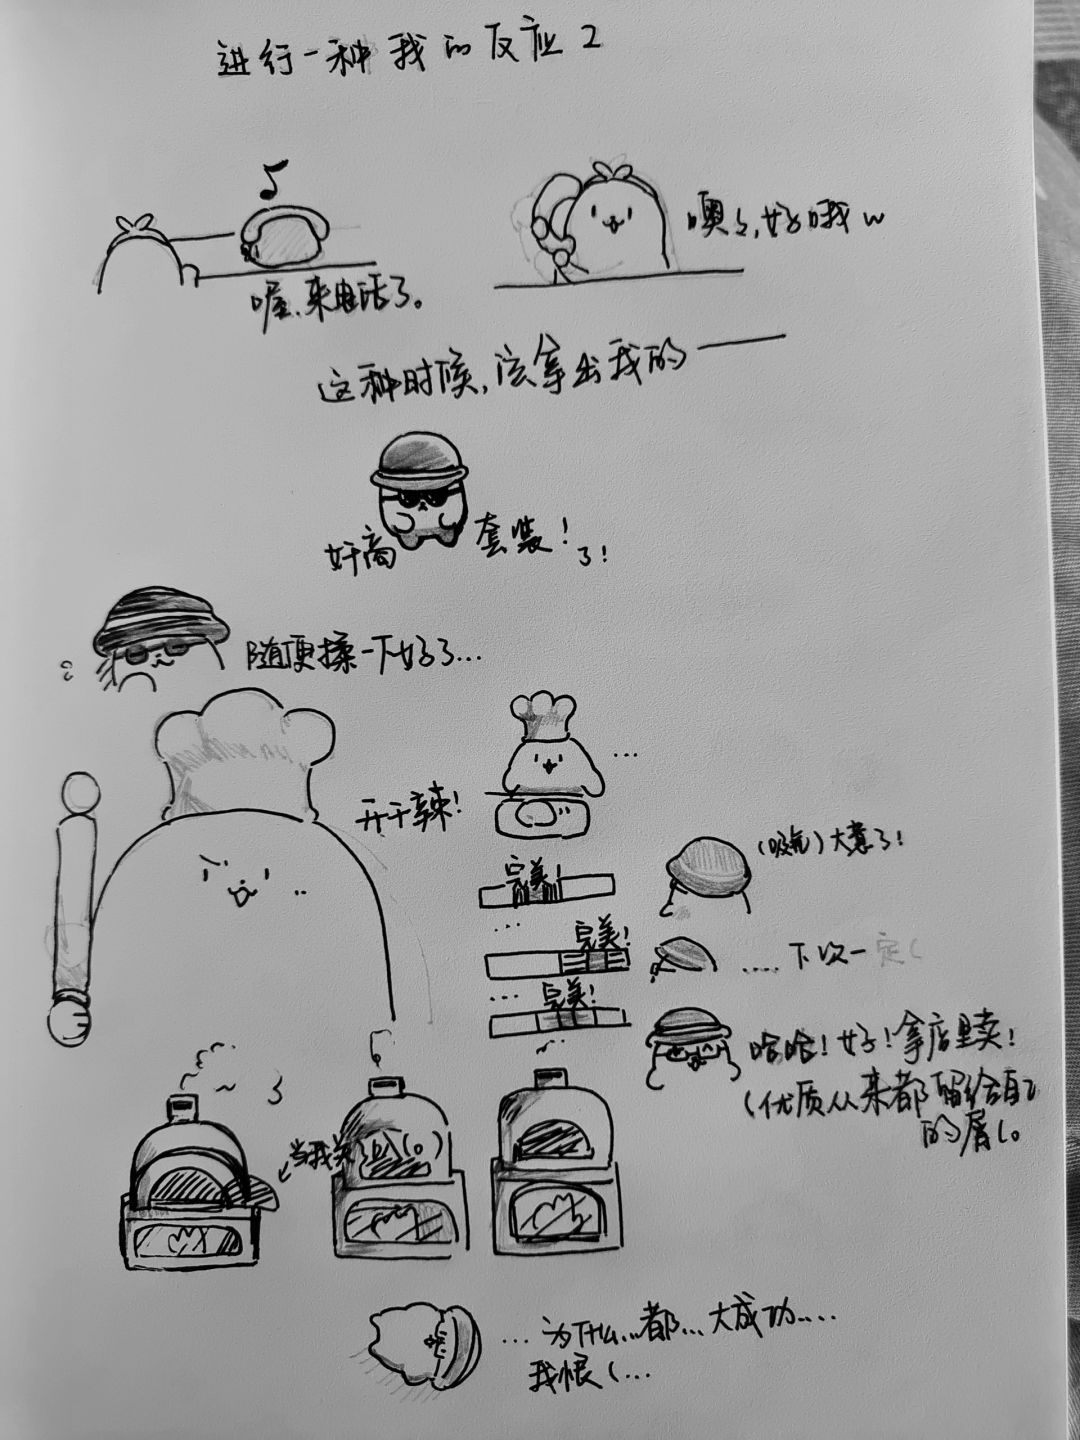 进行一种我的反应2
喔、来电话了。
噢々,好哦w
这种时候,该拿出我的——
奸商套装!了!
随便揉一下好了...
开干辣!
...
完美!
(吸气)大意了!
...
完美!
.....下次一定(
...
完美!
哈哈!好!拿店里卖!
(优质从来都留给自己
的屑(。
...为什么...都...大成功....
我恨(...